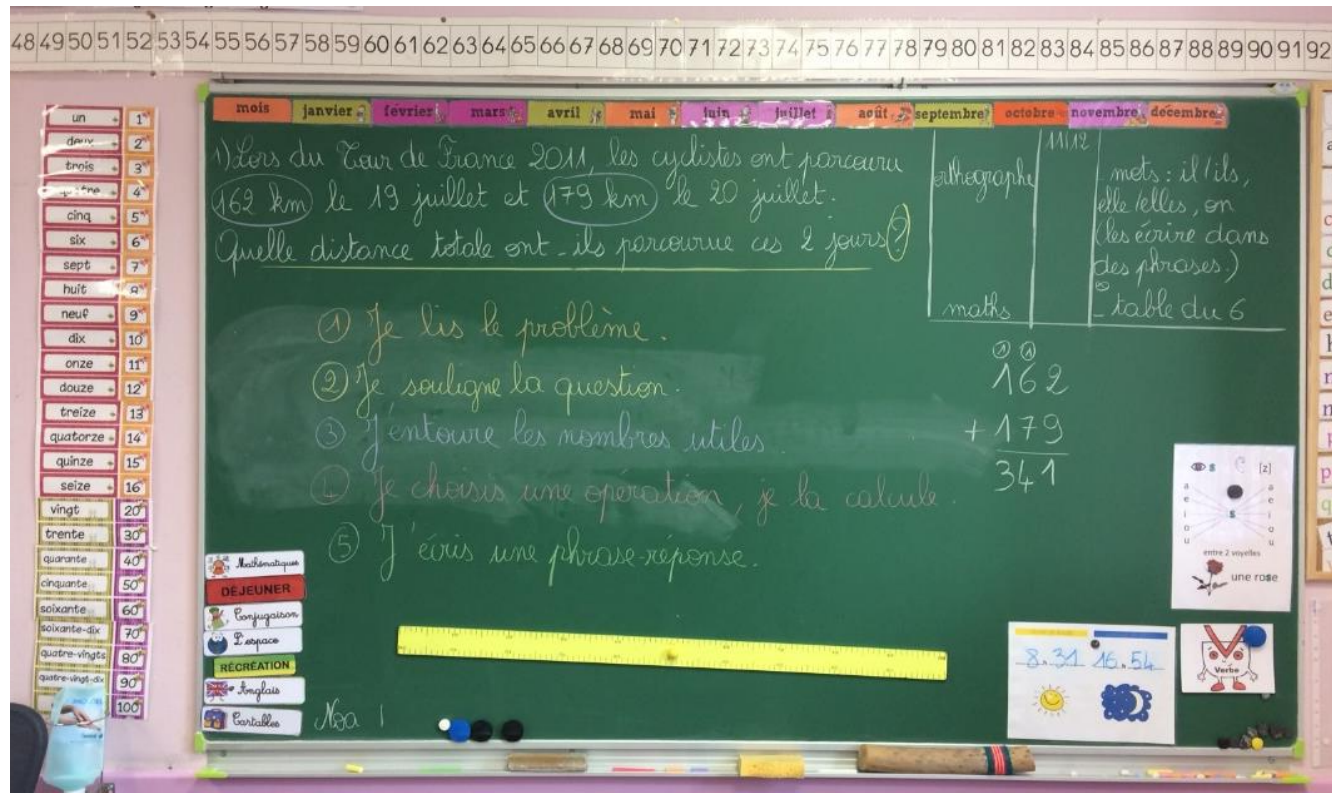 48 49 50 51 52 53 54 55 56 57 58 59 60 61 62 63 64 65 66 67 68 69 70 71 72 73 74 75 76 77 78 79 80 81 82 83 84 85 86 87 88 89 90 91 92
mois janvier février mars avril mai juin juillet août septembre octobre novembre décembre
un 1
deux 2
trois 3
quatre 4
cinq 5
six 6
sept 7
huit 8
neuf 9
dix 10
onze 11
douze 12
treize 13
quatorze 14
quinze 15
seize 16
vingt 20
trente 30
quarante 40
cinquante 50
soixante 60
soixante-dix 70
quatre-vingts 80
quatre-vingt-dix 90
100
1) Lors du Tour de France 2011, les cyclistes ont parcouru
162 km le 19 juillet et 179 km le 20 juillet.
Quelle distance totale ont-ils parcourue ces 2 jours ?
① Je lis le problème.
② Je souligne la question.
③ J'entoure les nombres utiles.
④ Je choisis une opération, je la calcule.
⑤ J'écris une phrase-réponse.
11/12
orthographe
mots : il/ils,
elle/elles, on
(les écrire dans
des phrases.)
maths
- table du 6
① ①
162
+ 179
341
Mathématiques
DÉJEUNER
Conjugaison
L'espace
RÉCRÉATION
Anglais
Cartables
Noa 1
s [z]
a a
e e
i s i
o o
u u
entre 2 voyelles
une rose
8.31 16.54
Verbe